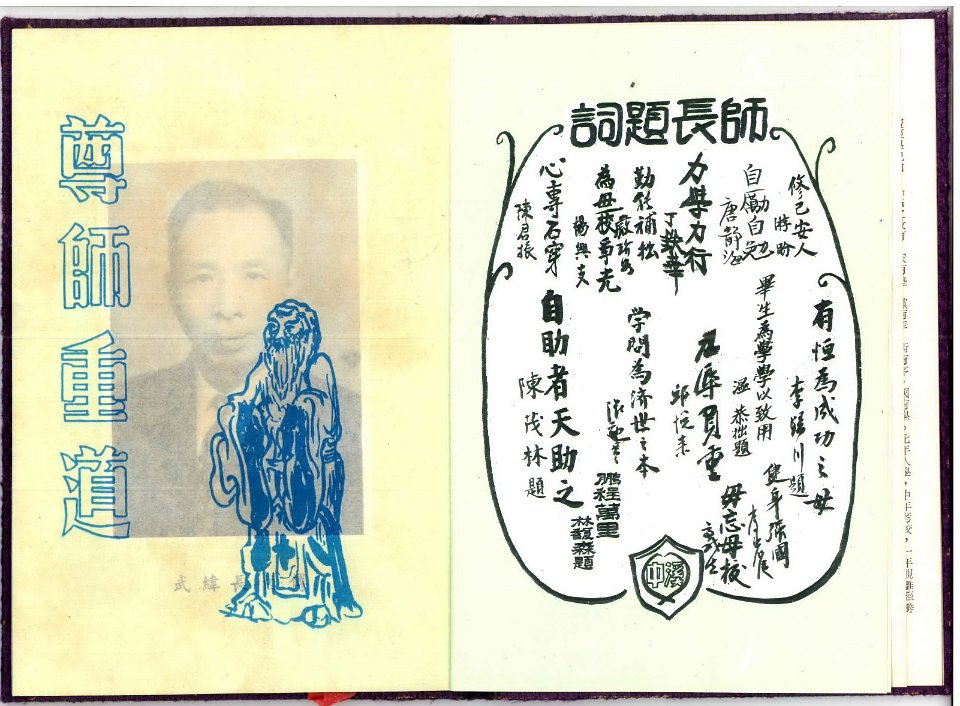 尊師重道
武緯長
師長題詞
修己安人
時盼
自勵自勉
唐靜海
力學力行
丁鐵華
勤能補拙
為母校爭光
楊興文
心專石穿
陳君振
有恒為成功之母
李繼川題
畢生為學學以致用
溫恭拙題
任厚負重
邱悅來
学問為济世之本
自助者天助之
陳茂林題
健身強國
毋忘母校
鵬程萬里
林馥森題
溪中